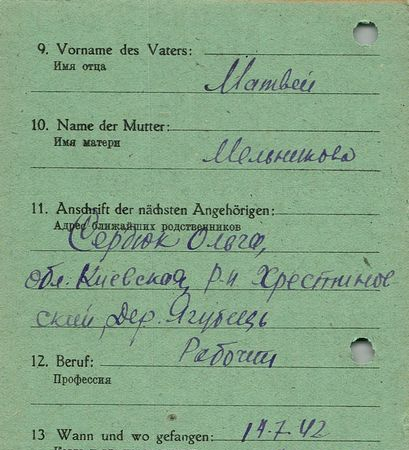 9. Vorname des Vaters:
Имя отца
Матвей
10. Name der Mutter:
Имя матери
Мельникова
11. Anschrift der nächsten Angehörigen:
Адрес ближайших родственников
Сердюк Ольга,
обл. Киевская, р-н Хрестинов-
ский дер. Ягубець
12. Beruf:
Рабочий
Профессия
13 Wann und wo gefangen: 14.7.42